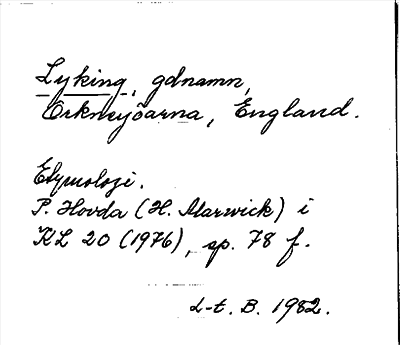 Lyking, gdnamn,
Orkneyöarna, England.
Etymologi.
P. Hovda (H. Marwick) i
KL 20 (1976), sp. 78 f.
L-t. B. 1982.